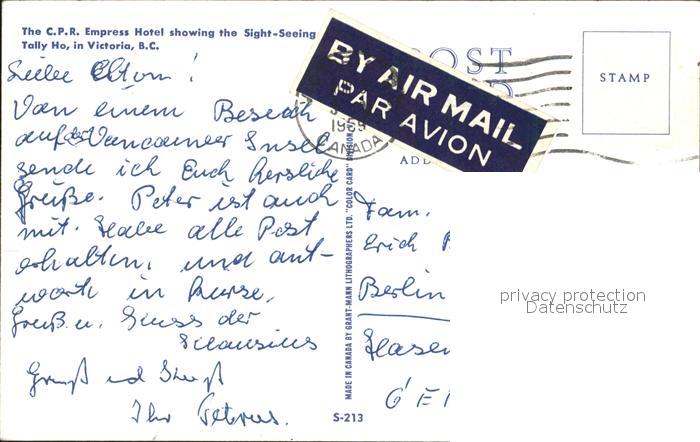 The C.P.R. Empress Hotel showing the Sight-Seeing
Tally Ho, in Victoria, B.C.
Liebe Eltern!
Von einem Besuch
auf der Vancouver Insel
sende ich Euch herzliche
Grüße. Peter ist auch
mit. Habe alle Post
erhalten, und ant-
worte in Kürze.
Gruß u. Kuss der
Gruß und Kuß
Ihr Petrus.
POST
BY AIR MAIL
PAR AVION
1969
CANADA
STAMP
MADE IN CANADA BY GRANT-MANN LITHOGRAPHERS LTD. "COLOR CARD" DIVISION
Fam.
Erich
Berlin
Hasen
S-213
privacy protection
Datenschutz